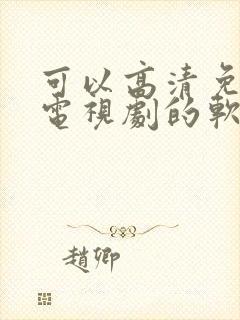 可以高清免
電視劇的軟
趙卿